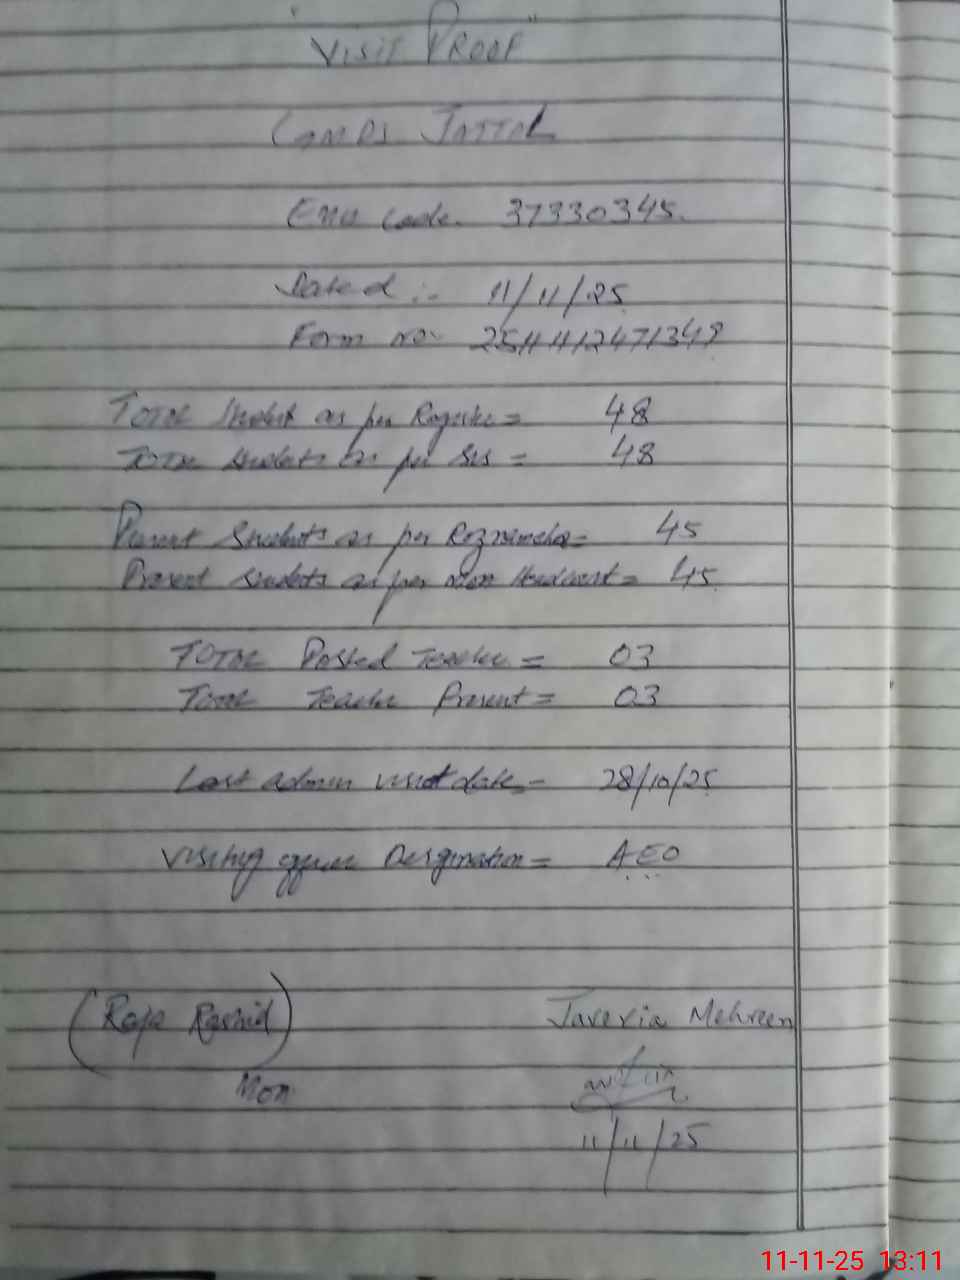 "VISIT PROOF"
GMPS JATTAL
EMIS Code. 37330345.
Dated :- 11/11/25
Form no:
Total Student as per Register = 48
Total Students as per SIS = 48
Present Students as per Roznamcha = 45
Present Students as per Mon Headcount = 45
TOTAL Posted Teacher = 03
Total Teacher Present = 03
Last admin visit date - 28/10/25
Visiting officer Designation = AEO
(Raja Rashid) Javeria Mehreen
Mon
11/11/25
11-11-25 13:11